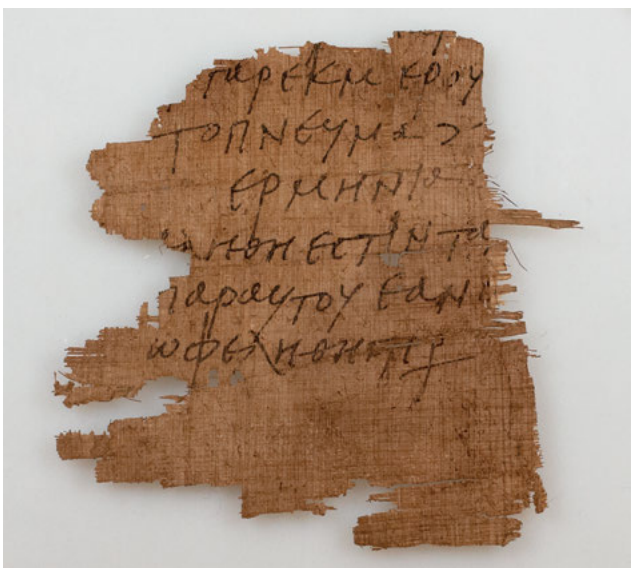 γαρ εκ μερου
το πνευμα
ερμηνια
ληθη εστιν τα
παρ αυτου εαν
ωφεληθη